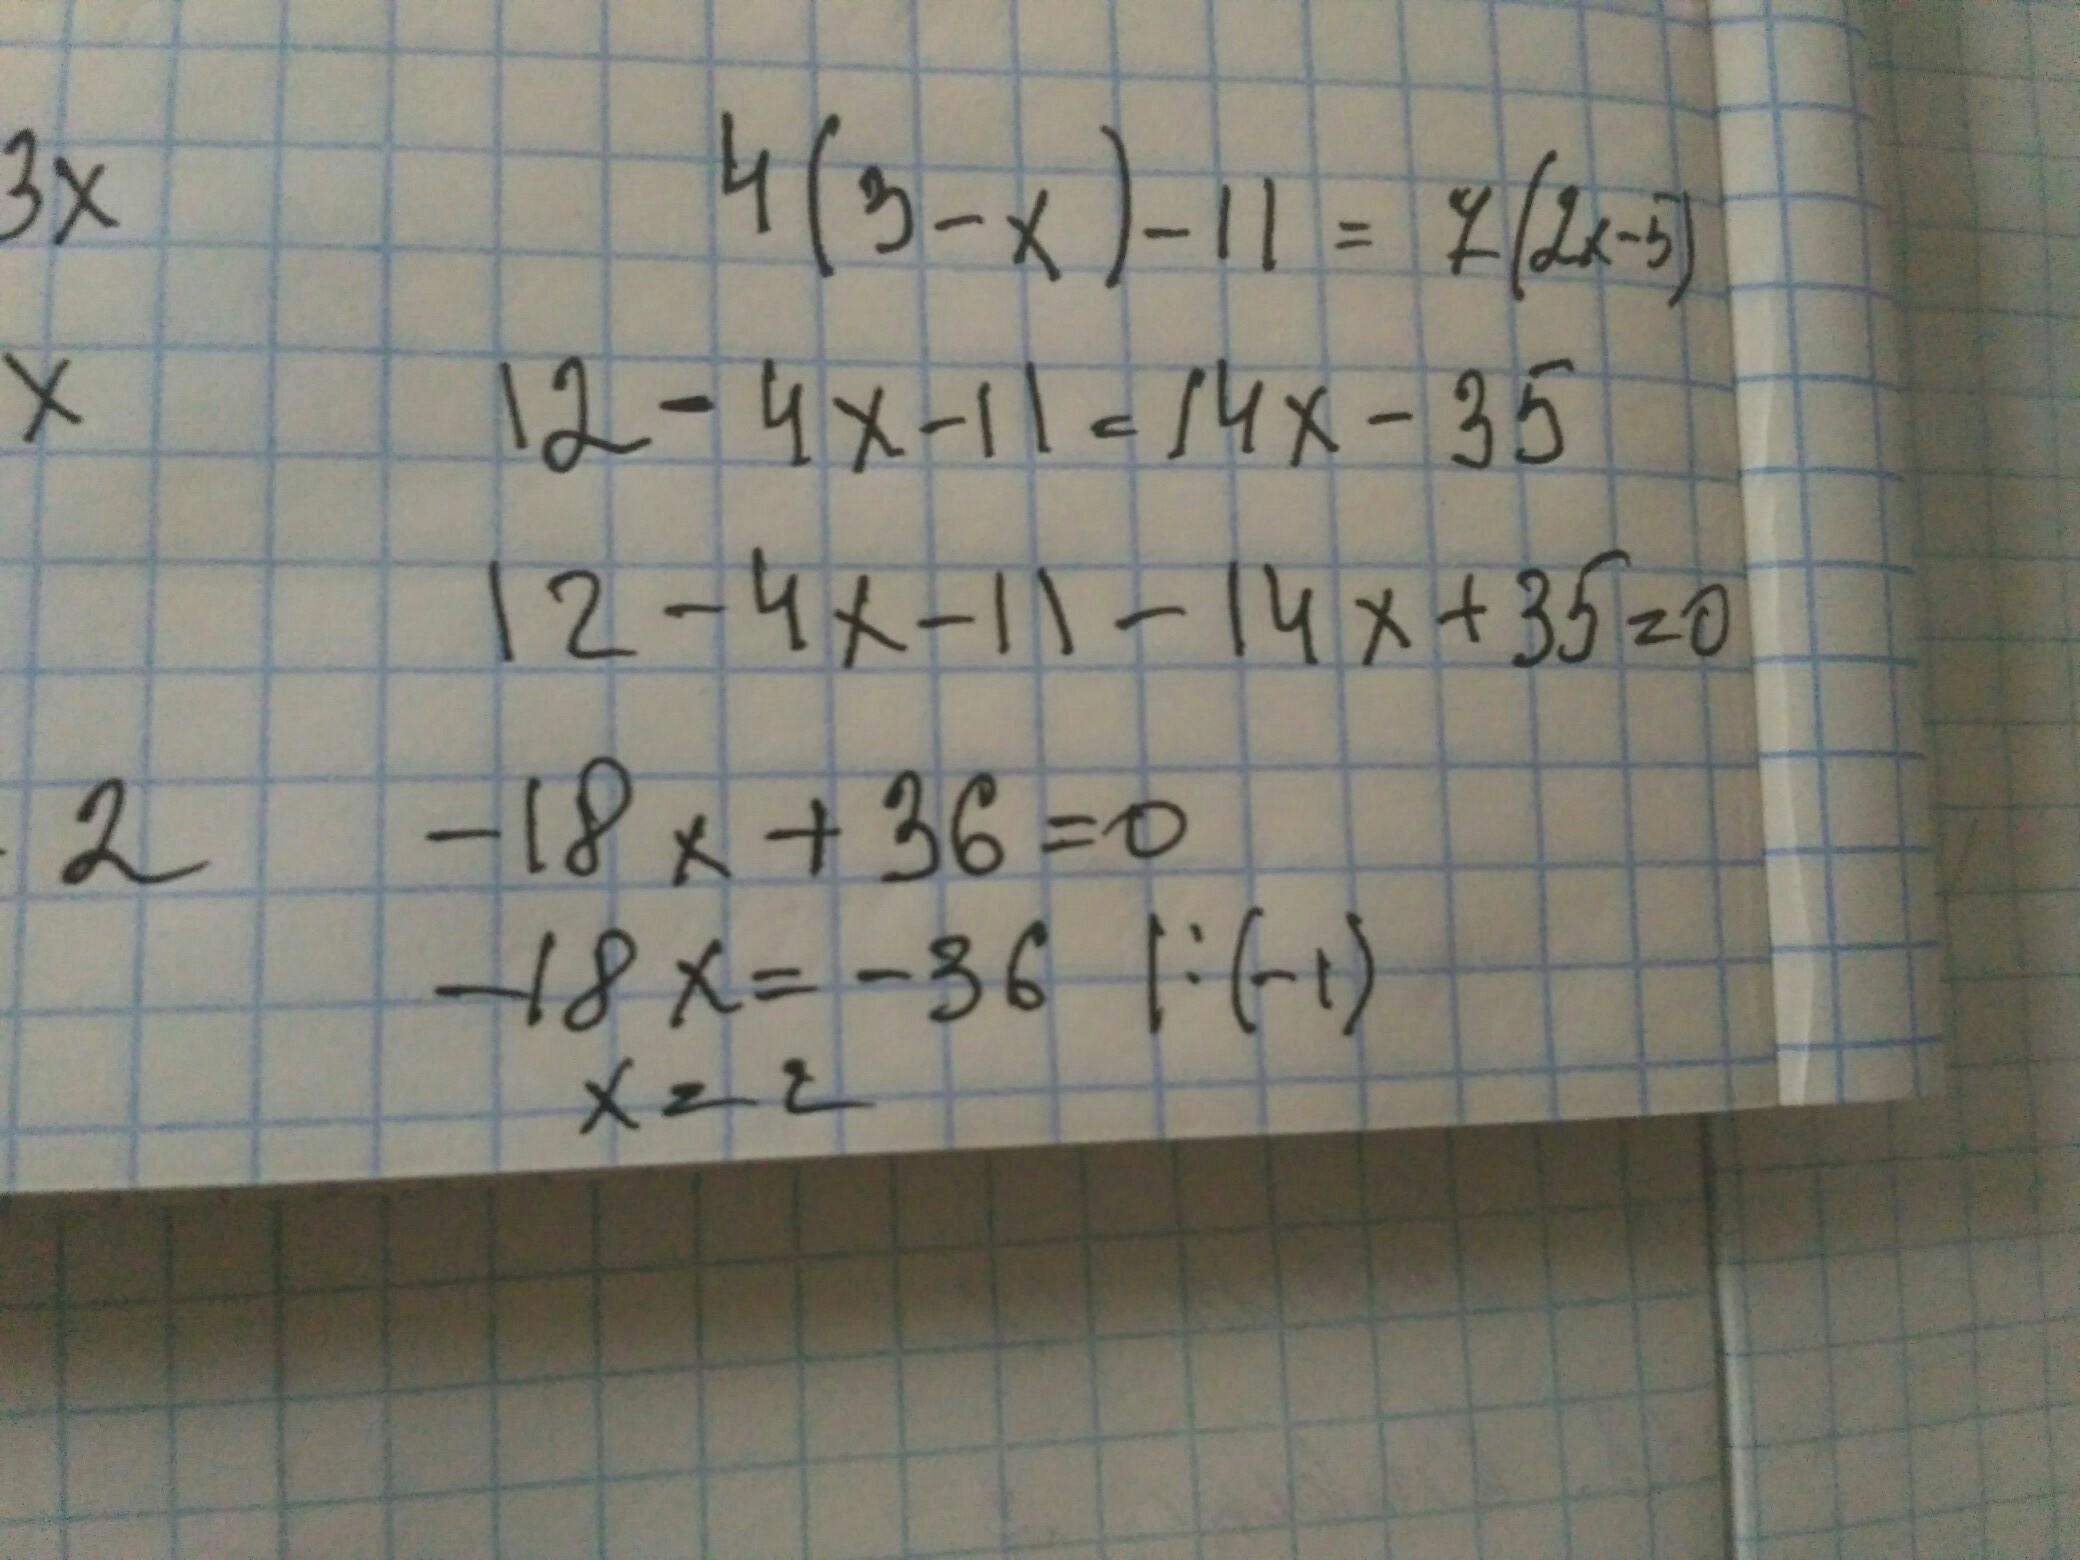 3x
4(3-x)-11 = 7(2x-5)
x
12-4x-11=14x-35
12-4x-11-14x+35=0
2
-18x+36=0
-18x=-36 |:(-1)
x=2